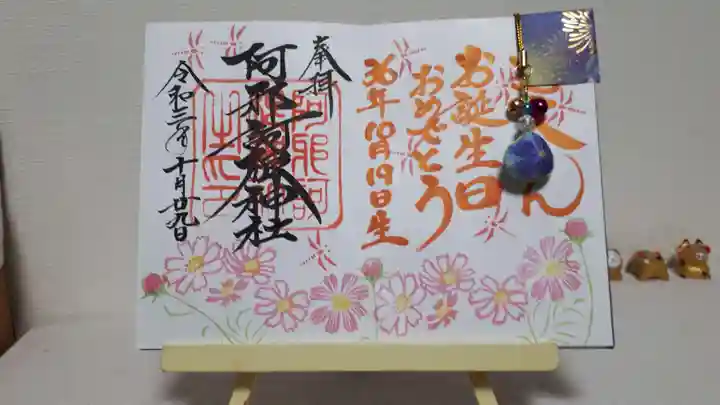 お誕生日
おめでとう
36年10月19日生
奉拝
阿邪訶根神社
令和二年十月廿九日